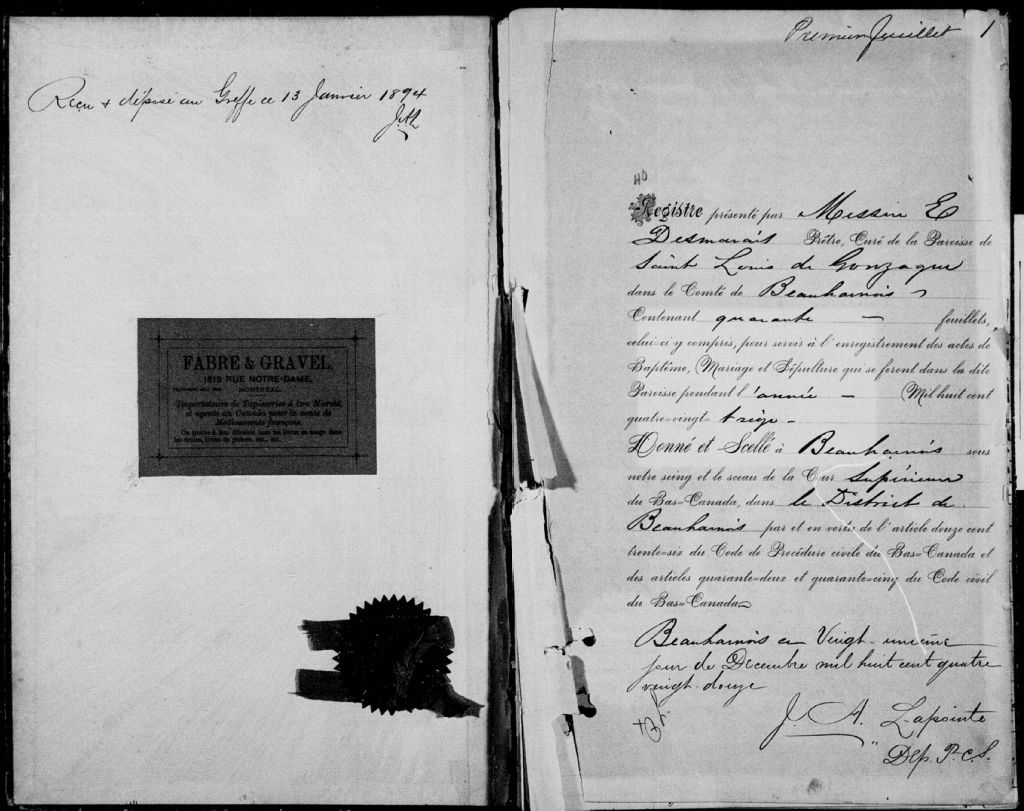 Reçu & déposé au Greffe ce 13 Janvier 1894
FABRE & GRAVEL,
1619 RUE NOTRE-DAME,
MONTREAL.
Importateurs de Tapisseries à bon Marché,
et agents au Canada pour la vente de
Médicaments français.
On trouve à leur librairie tous les livres en usage dans
les écoles, livres de prières, etc., etc.
Premier feuillet 1
Registre présenté par Messire E
Desmarais Prêtre, Curé de la Paroisse de
Saint Louis de Gonzague
dans le Comté de Beauharnois
Contenant quarante — feuillets,
celui-ci y compris, pour servir à l'enregistrement des actes de
Baptême, Mariage et Sépulture qui se feront dans la dite
Paroisse pendant l'année — Mil huit cent
quatre-vingt- treize -
Donné et Scellé à Beauharnois sous
notre seing et le sceau de la Cour Supérieure
du Bas-Canada, dans le District de
Beauharnois par et en vertu de l'article douze cent
trente-six du Code de Procédure civile du Bas-Canada et
des articles quarante-deux et quarante-cinq du Code civil
du Bas-Canada
Beauharnois ce Vingt-unième
jour de Décembre mil huit cent quatre
vingt-douze
J. A. Lapointe
Dep. P. C. S.